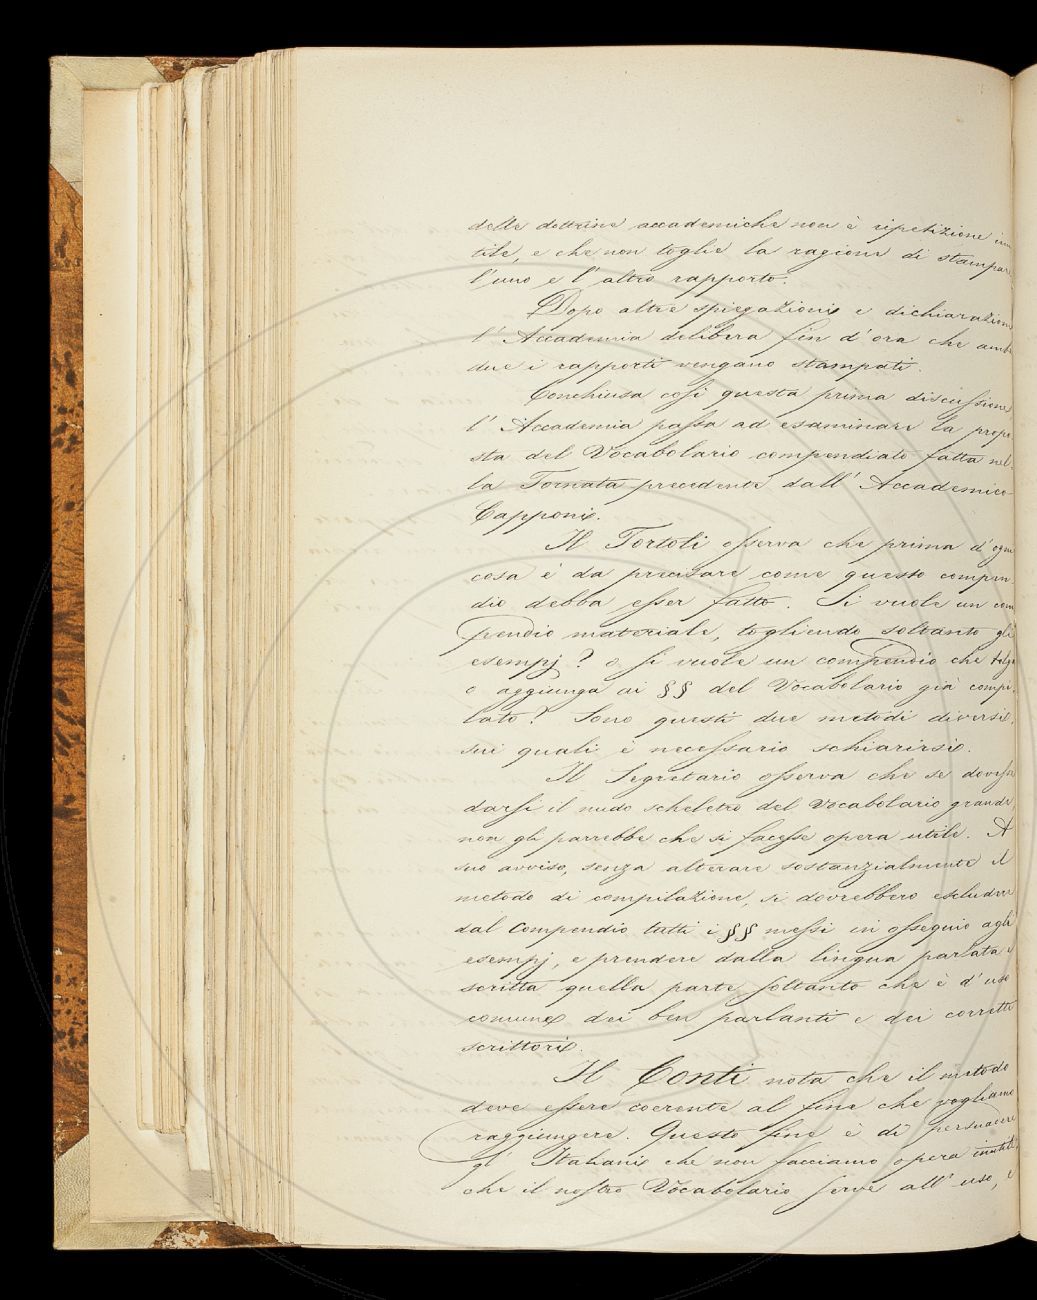 delle dottrine accademiche non è ripetizione inu
tile, e che non toglie la ragione di stampare
l'uno e l'altro rapporto.
Dopo altre spiegazioni e dichiarazioni
l'Accademia delibera fin d'ora che amb
due i rapporti vengano stampati.
Conchiusa così questa prima discussione,
l'Accademia passa ad esaminare la propo
sta del Vocabolario compendiato fatta nel-
la Tornata precedente dall'Accademico
Capponi.
Il Tortoli osserva che prima d'ogni
cosa è da precisare come questo compen
dio debba esser fatto. Si vuole un com
pendio materiale, togliendo soltanto gli
esempj? o si vuole un compendio che tolga
o aggiunga ai §§ del Vocabolario già compi-
lato? Sono questi due metodi diversi,
sui quali è necessario schiarirsi.
Il Segretario osserva che se dovesse
darsi il nudo scheletro del Vocabolario grande,
non gli parrebbe che si facesse opera utile. A
suo avviso, senza alterare sostanzialmente il
metodo di compilazione, si dovrebbero escludere
dal Compendio tutti i §§ messi in ossequio agli
esempj, e prendere dalla lingua parlata e
scritta quella parte soltanto che è d'uso
comune dei ben parlanti e dei corretti
scrittori.
Il Conti nota che il metodo
deve essere coerente al fine che vogliamo
raggiungere. Questo fine è di persuadere
gl'Italiani che non facciamo opera inutile,
che il nostro Vocabolario serve all'uso, e